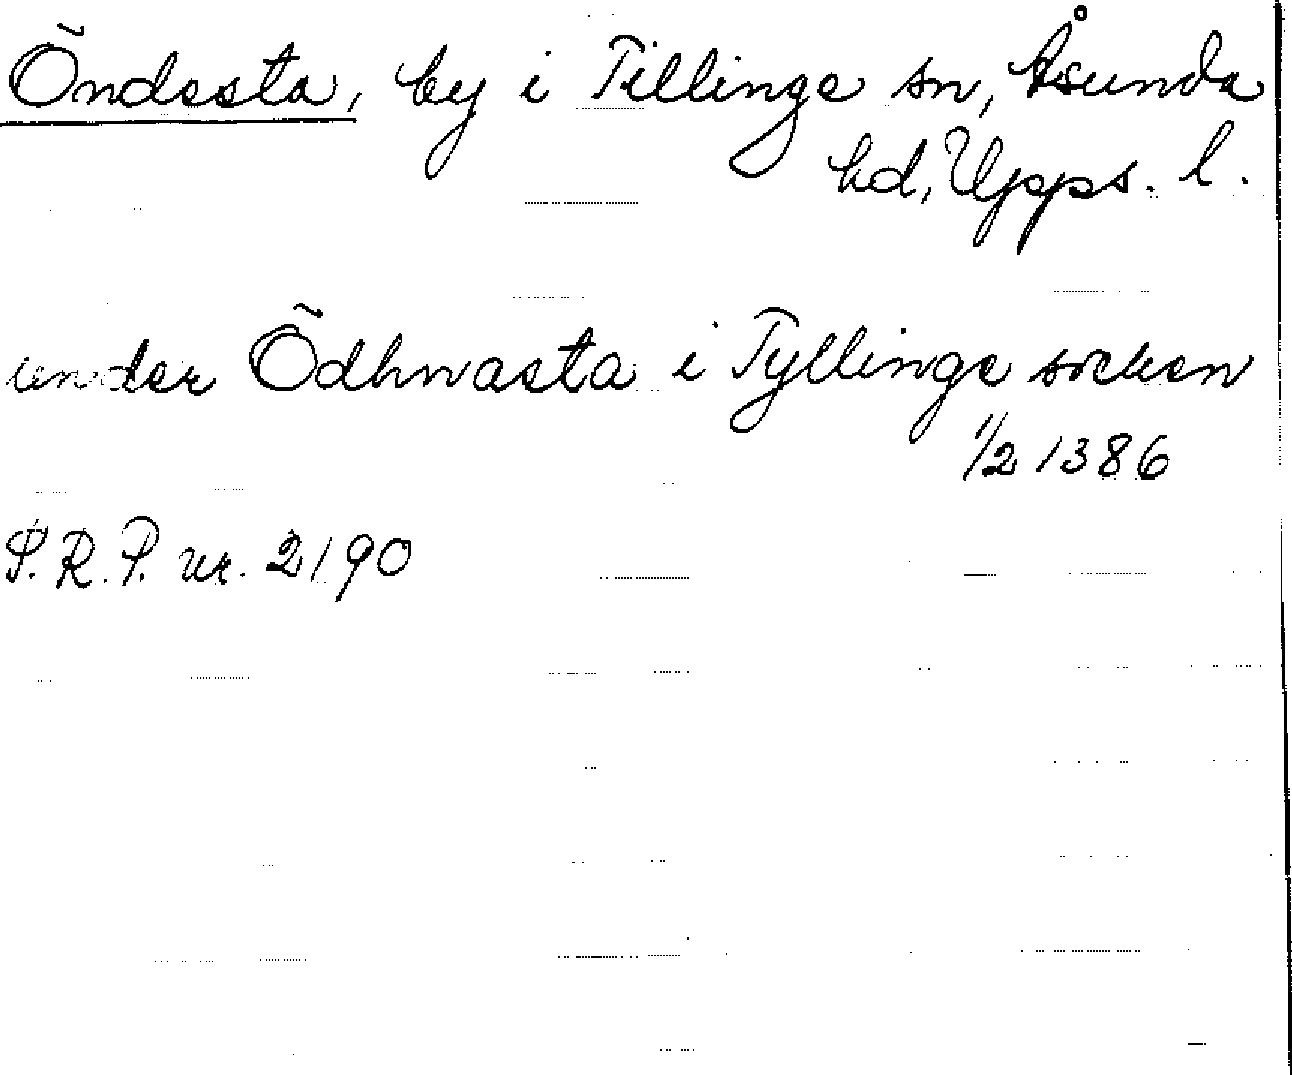 Öndesta, by i Tillinge sn, Åsunda
hd, Upps. l.
under Ödhnvasta i Tyllinge socken
1/2 1386
S.R.P. nr. 2190